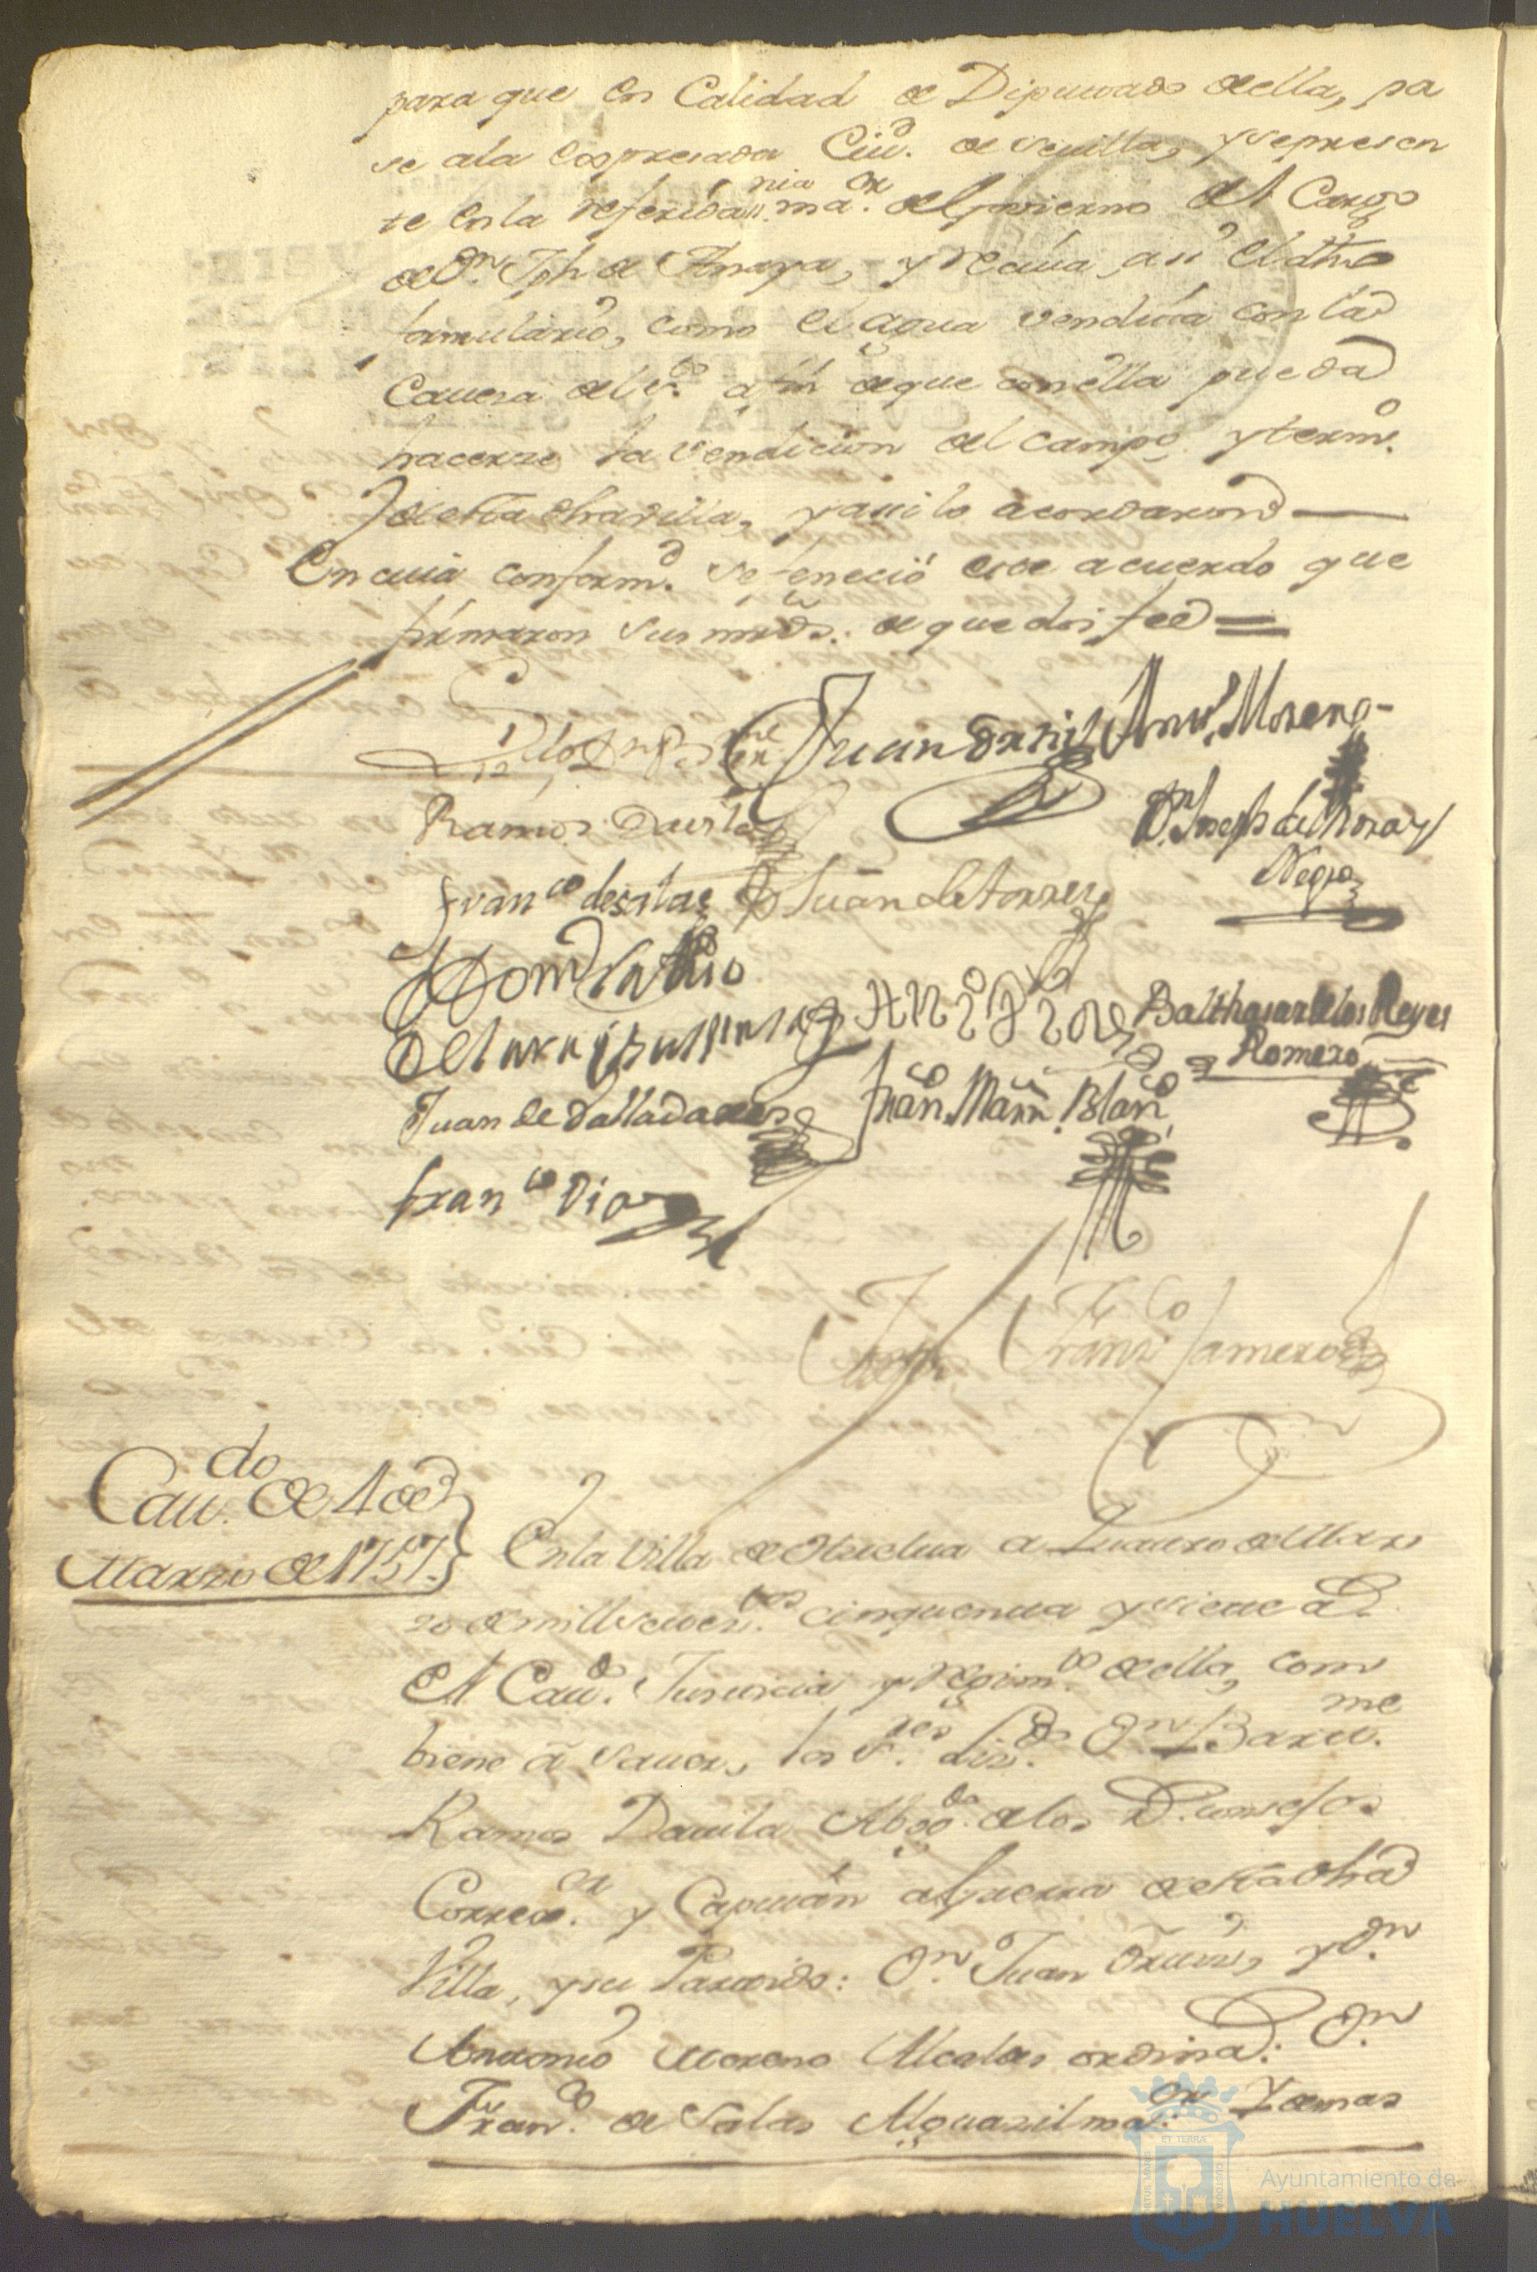 para que en Calidad de Diputado della, pa
se ala expresada Ciud. de Sevilla, y represen
te en la referida nia or ma. del govierno del Cargo
de Dn. Jph de Anaya, y reciva asi el dho
formulario, como el agua vendita con la
Cavera del Sto. a fin de que con ella pueda
hacerze la vendicion del campo y termo.
de esta dha villa, y asi lo acordaron
En cuia conformd. se feneció este acuerdo que
firmaron sus mrds. de que doi fee =
Ramos Davila
Juan Ortiz
Anto. Moreno
Dn. Joseph de Mora y
Negro
Franco de Salas
Juan de Torres
Balthasar de los Reyes
Romero
Juan de Valladares
Fran. Marn. Blanco
Franco Diaz
Franco Jamero
Caudo. de 4 de
Marzo de 1757.
En la Villa de Huelva a Quatro de Mar
zo de mill setezos. cinquenta y siete as.
El Caud. Justicia y Regimto. de ella, com
biene a saver, los Sres. Lizdo. Dn. Bartme.
Ramos Davila Abogdo. de los Rs. consejos
Corregor. y Capitán a guerra de esta dha
Villa, y su Partido: Dn. Juan Ortiz, y Dn.
Antonio Moreno Alcaldes ordins: Dn.
Franco. de Salas Alguazil maor. Y demas
Ayuntamiento de
HUELVA